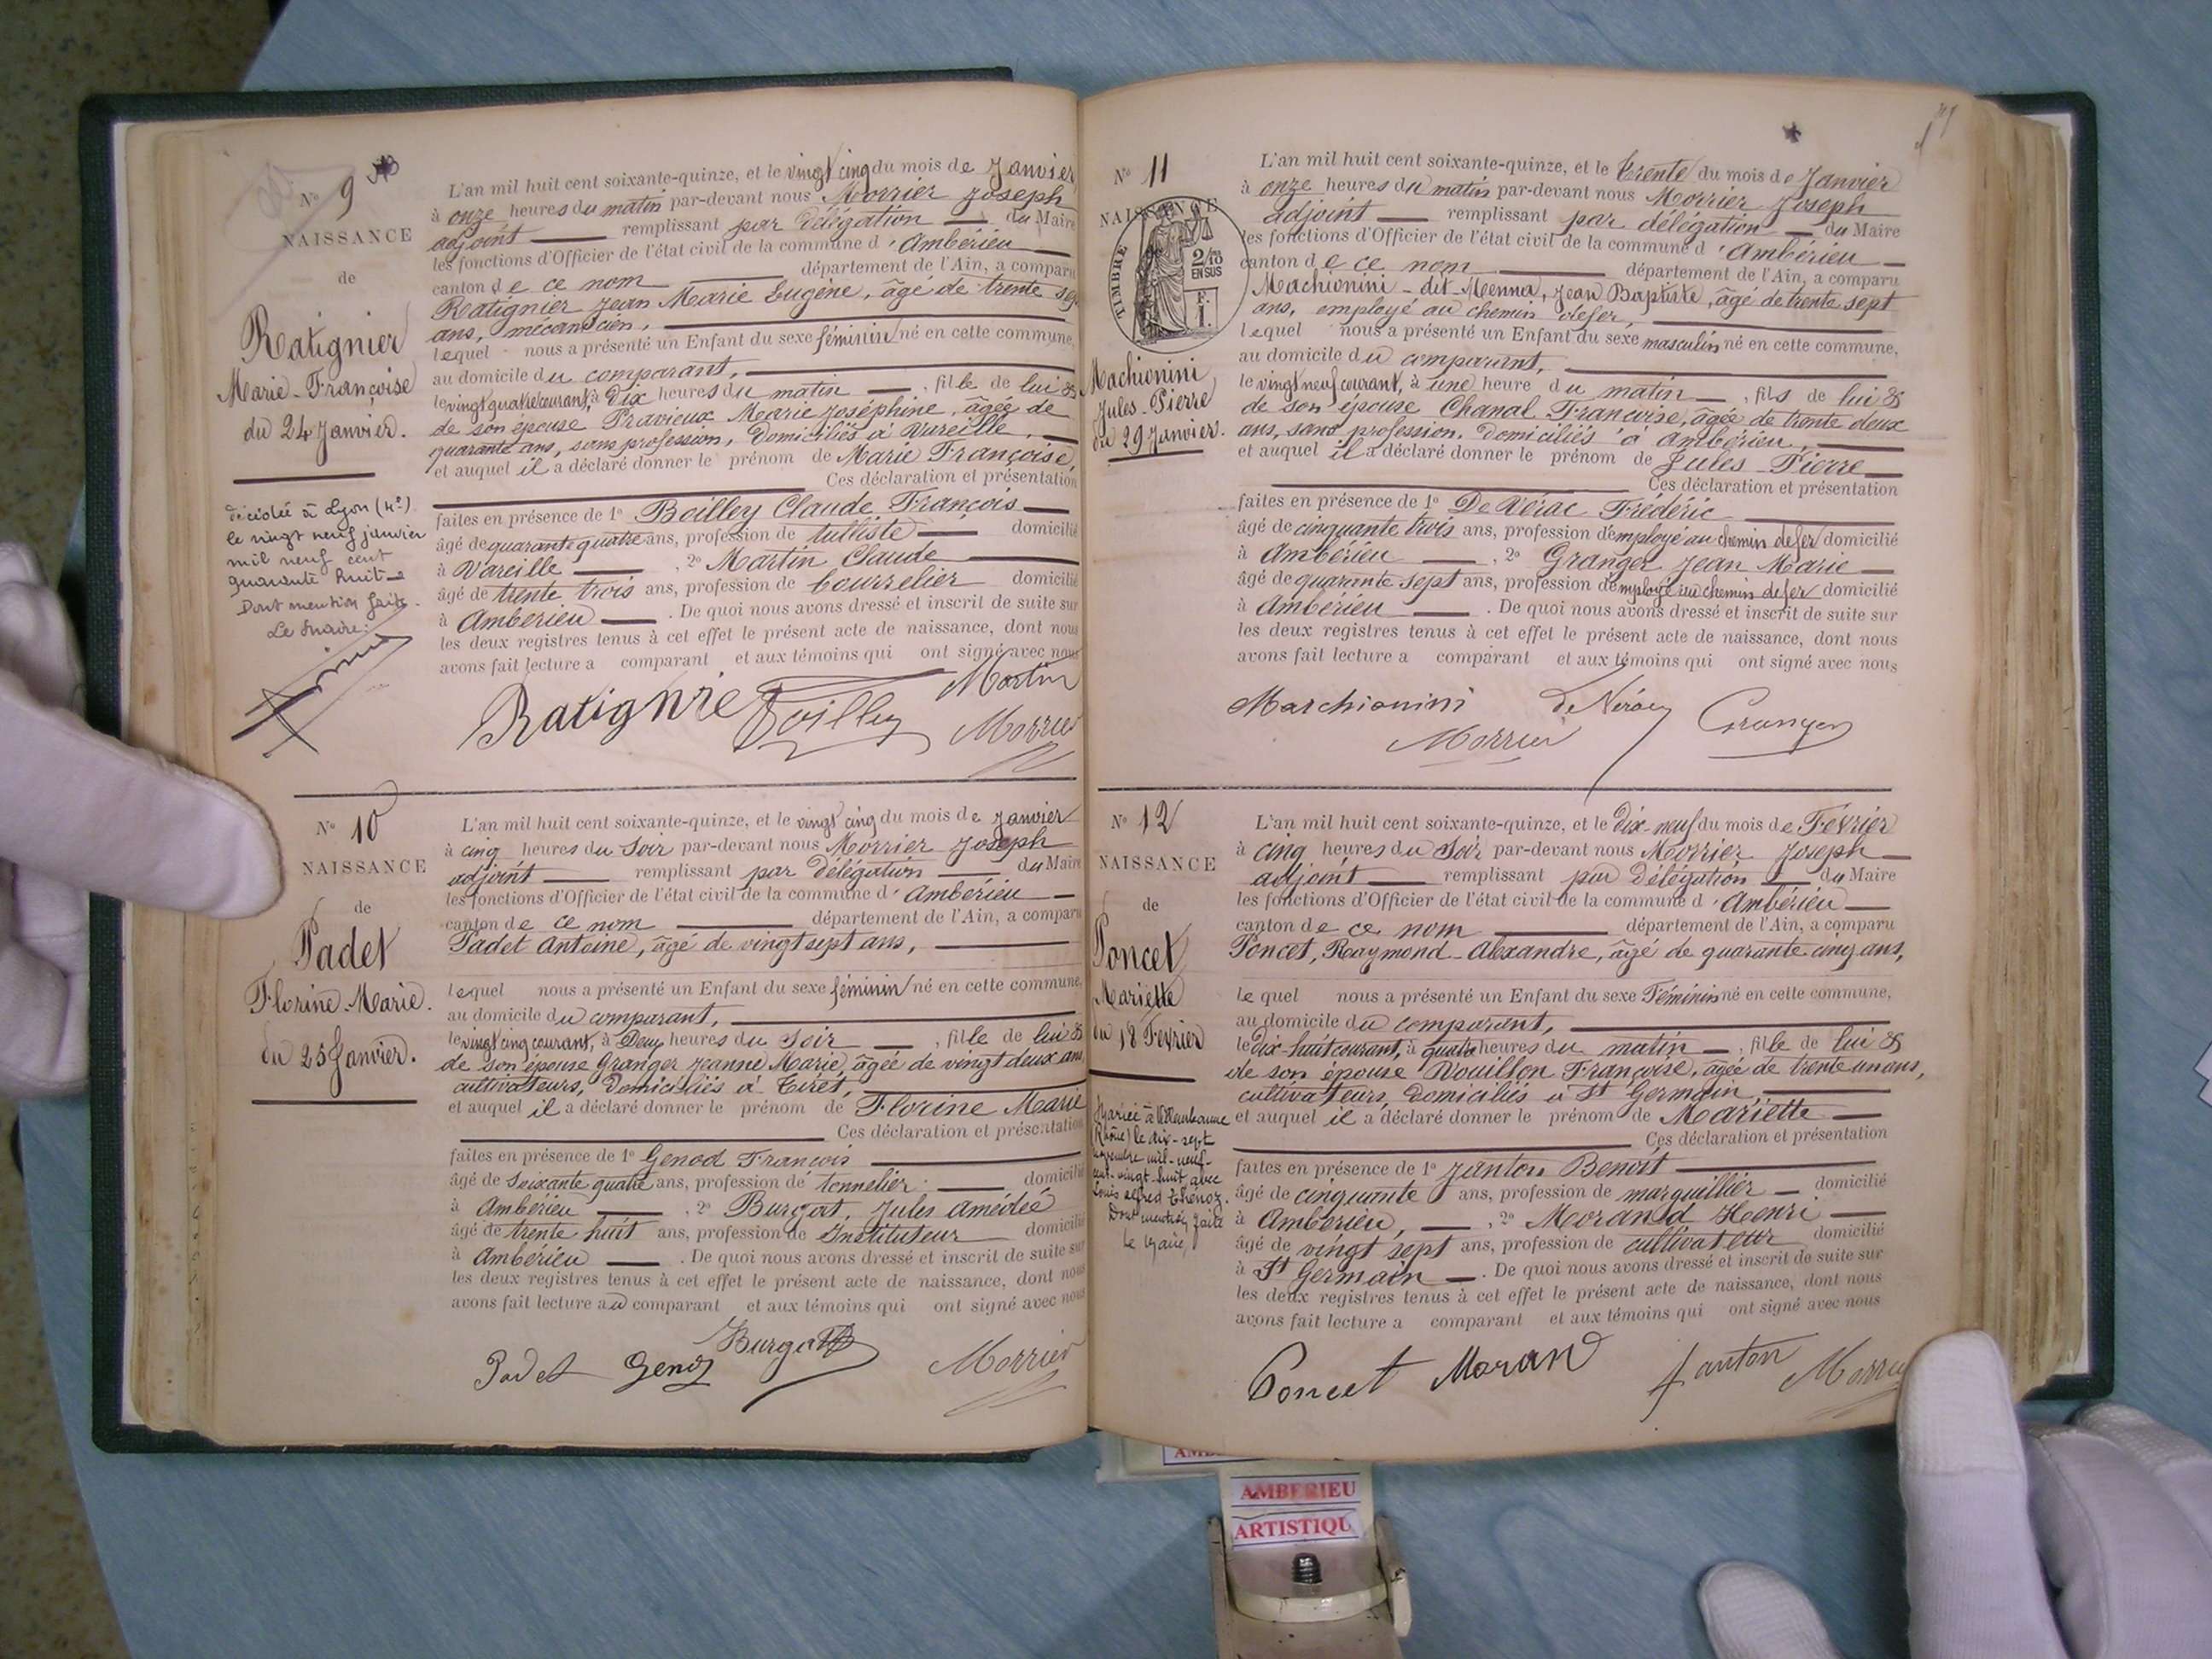 N° 9
NAISSANCE
de
Ratignier
Marie-Françoise
du 24 Janvier.
décédée à Lyon (4e)
le vingt neuf janvier
mil neuf cent
quarante huit
Dont mention faite.
Le Maire:
L'an mil huit cent soixante-quinze, et le vingt cinq du mois de Janvier
à onze heures du matin par-devant nous Morrier Joseph
adjoint remplissant par délégation du Maire
les fonctions d'Officier de l'état civil de la commune d'Ambérieu
canton de ce nom département de l'Ain, a comparu
Ratignier Jean Marie Eugène, âgé de trente sept
ans, mécanicien,
lequel nous a présenté un Enfant du sexe féminin né en cette commune,
au domicile du comparant,
le vingt quatre courant, à Dix heures du matin, fille de lui &
de son épouse Pravieux Marie Joséphine, âgée de
quarante ans, sans profession, domiciliés à Vareille,
et auquel il a déclaré donner le prénom de Marie Françoise,
Ces déclaration et présentation
faites en présence de 1° Boilley Claude François
âgé de quarante quatre ans, profession de tulliste domicilié
à Vareille, 2° Martin Claude
âgé de trente trois ans, profession de bourrelier domicilié
à Ambérieu. De quoi nous avons dressé et inscrit de suite sur
les deux registres tenus à cet effet le présent acte de naissance, dont nous
avons fait lecture a comparant et aux témoins qui ont signé avec nous
Ratignier Boilley Martin
Morrier
N° 10
NAISSANCE
de
Padet
Florine-Marie.
du 25 Janvier.
L'an mil huit cent soixante-quinze, et le vingt cinq du mois de Janvier
à cinq heures du Soir par-devant nous Morrier Joseph
adjoint remplissant par délégation du Maire
les fonctions d'Officier de l'état civil de la commune d'Ambérieu
canton de ce nom département de l'Ain, a comparu
Padet Antoine, âgé de vingt sept ans,
lequel nous a présenté un Enfant du sexe féminin né en cette commune,
au domicile du comparant,
le vingt cinq courant, à Deux heures du Soir, fille de lui &
de son épouse Granger Jeanne Marie, âgée de vingt deux ans
cultivateurs, domiciliés à Tiret,
et auquel il a déclaré donner le prénom de Florine Marie
Ces déclaration et présentation
faites en présence de 1° Genod François
âgé de Soixante quatre ans, profession de tonnelier domicilié
à Ambérieu, 2° Burgat, Jules Amédée
âgé de trente huit ans, profession de Instituteur domicilié
à Ambérieu. De quoi nous avons dressé et inscrit de suite sur
les deux registres tenus à cet effet le présent acte de naissance, dont nous
avons fait lecture au comparant et aux témoins qui ont signé avec nous
Padet Genod Burgat Morrier
N° 11
NAISSANCE
TIMBRE
2/10
EN SUS
F.
1.
Machionini
Jules-Pierre
du 29 Janvier.
L'an mil huit cent soixante-quinze, et le trente du mois de Janvier
à onze heures du matin par-devant nous Morrier Joseph
adjoint remplissant par délégation du Maire
les fonctions d'Officier de l'état civil de la commune d'Ambérieu
canton de ce nom département de l'Ain, a comparu
Machionini-dit-Menna, Jean Baptiste, âgé de trente sept
ans, employé au chemin de fer,
lequel nous a présenté un Enfant du sexe masculin né en cette commune,
au domicile du comparant,
le vingt neuf courant, à une heure du matin, fils de lui &
de son épouse Chanal Françoise, âgée de trente deux
ans, sans profession, domiciliés à Ambérieu,
et auquel il a déclaré donner le prénom de Jules-Pierre
Ces déclaration et présentation
faites en présence de 1° De Nérac Frédéric
âgé de cinquante trois ans, profession d'employé au chemin de fer domicilié
à Ambérieu, 2° Granger Jean Marie
âgé de quarante sept ans, profession d'employé au chemin de fer domicilié
à Ambérieu. De quoi nous avons dressé et inscrit de suite sur
les deux registres tenus à cet effet le présent acte de naissance, dont nous
avons fait lecture a comparant et aux témoins qui ont signé avec nous
Marchionini de Nérac Granger
Morrier
N° 12
NAISSANCE
de
Poncet
Mariette
du 18 Février
Mariée à Villeurbanne
(Rhône) le dix-sept
novembre mil-neuf-
cent-vingt-huit avec
Louis Alfred Thénoz.
Dont mention faite
Le Maire,
L'an mil huit cent soixante-quinze, et le Dix-neuf du mois de Février
à cinq heures du Soir par-devant nous Morrier Joseph
adjoint remplissant par délégation du Maire
les fonctions d'Officier de l'état civil de la commune d'Ambérieu
canton de ce nom département de l'Ain, a comparu
Poncet, Raymond-Alexandre, âgé de quarante cinq ans,
lequel nous a présenté un Enfant du sexe Féminin né en cette commune,
au domicile du comparant,
le Dix-huit courant, à quatre heures du matin, fille de lui &
de son épouse Vouillon Françoise, âgée de trente un ans,
cultivateurs, domiciliés à St Germain,
et auquel il a déclaré donner le prénom de Mariette
Ces déclaration et présentation
faites en présence de 1° Janton Benoît
âgé de cinquante ans, profession de marguillier domicilié
à Ambérieu, 2° Morand Henri
âgé de vingt sept ans, profession de cultivateur domicilié
à St Germain. De quoi nous avons dressé et inscrit de suite sur
les deux registres tenus à cet effet le présent acte de naissance, dont nous
avons fait lecture a comparant et aux témoins qui ont signé avec nous
Poncet Moran Janton Morrier
AMBERIEU
ARTISTIQU